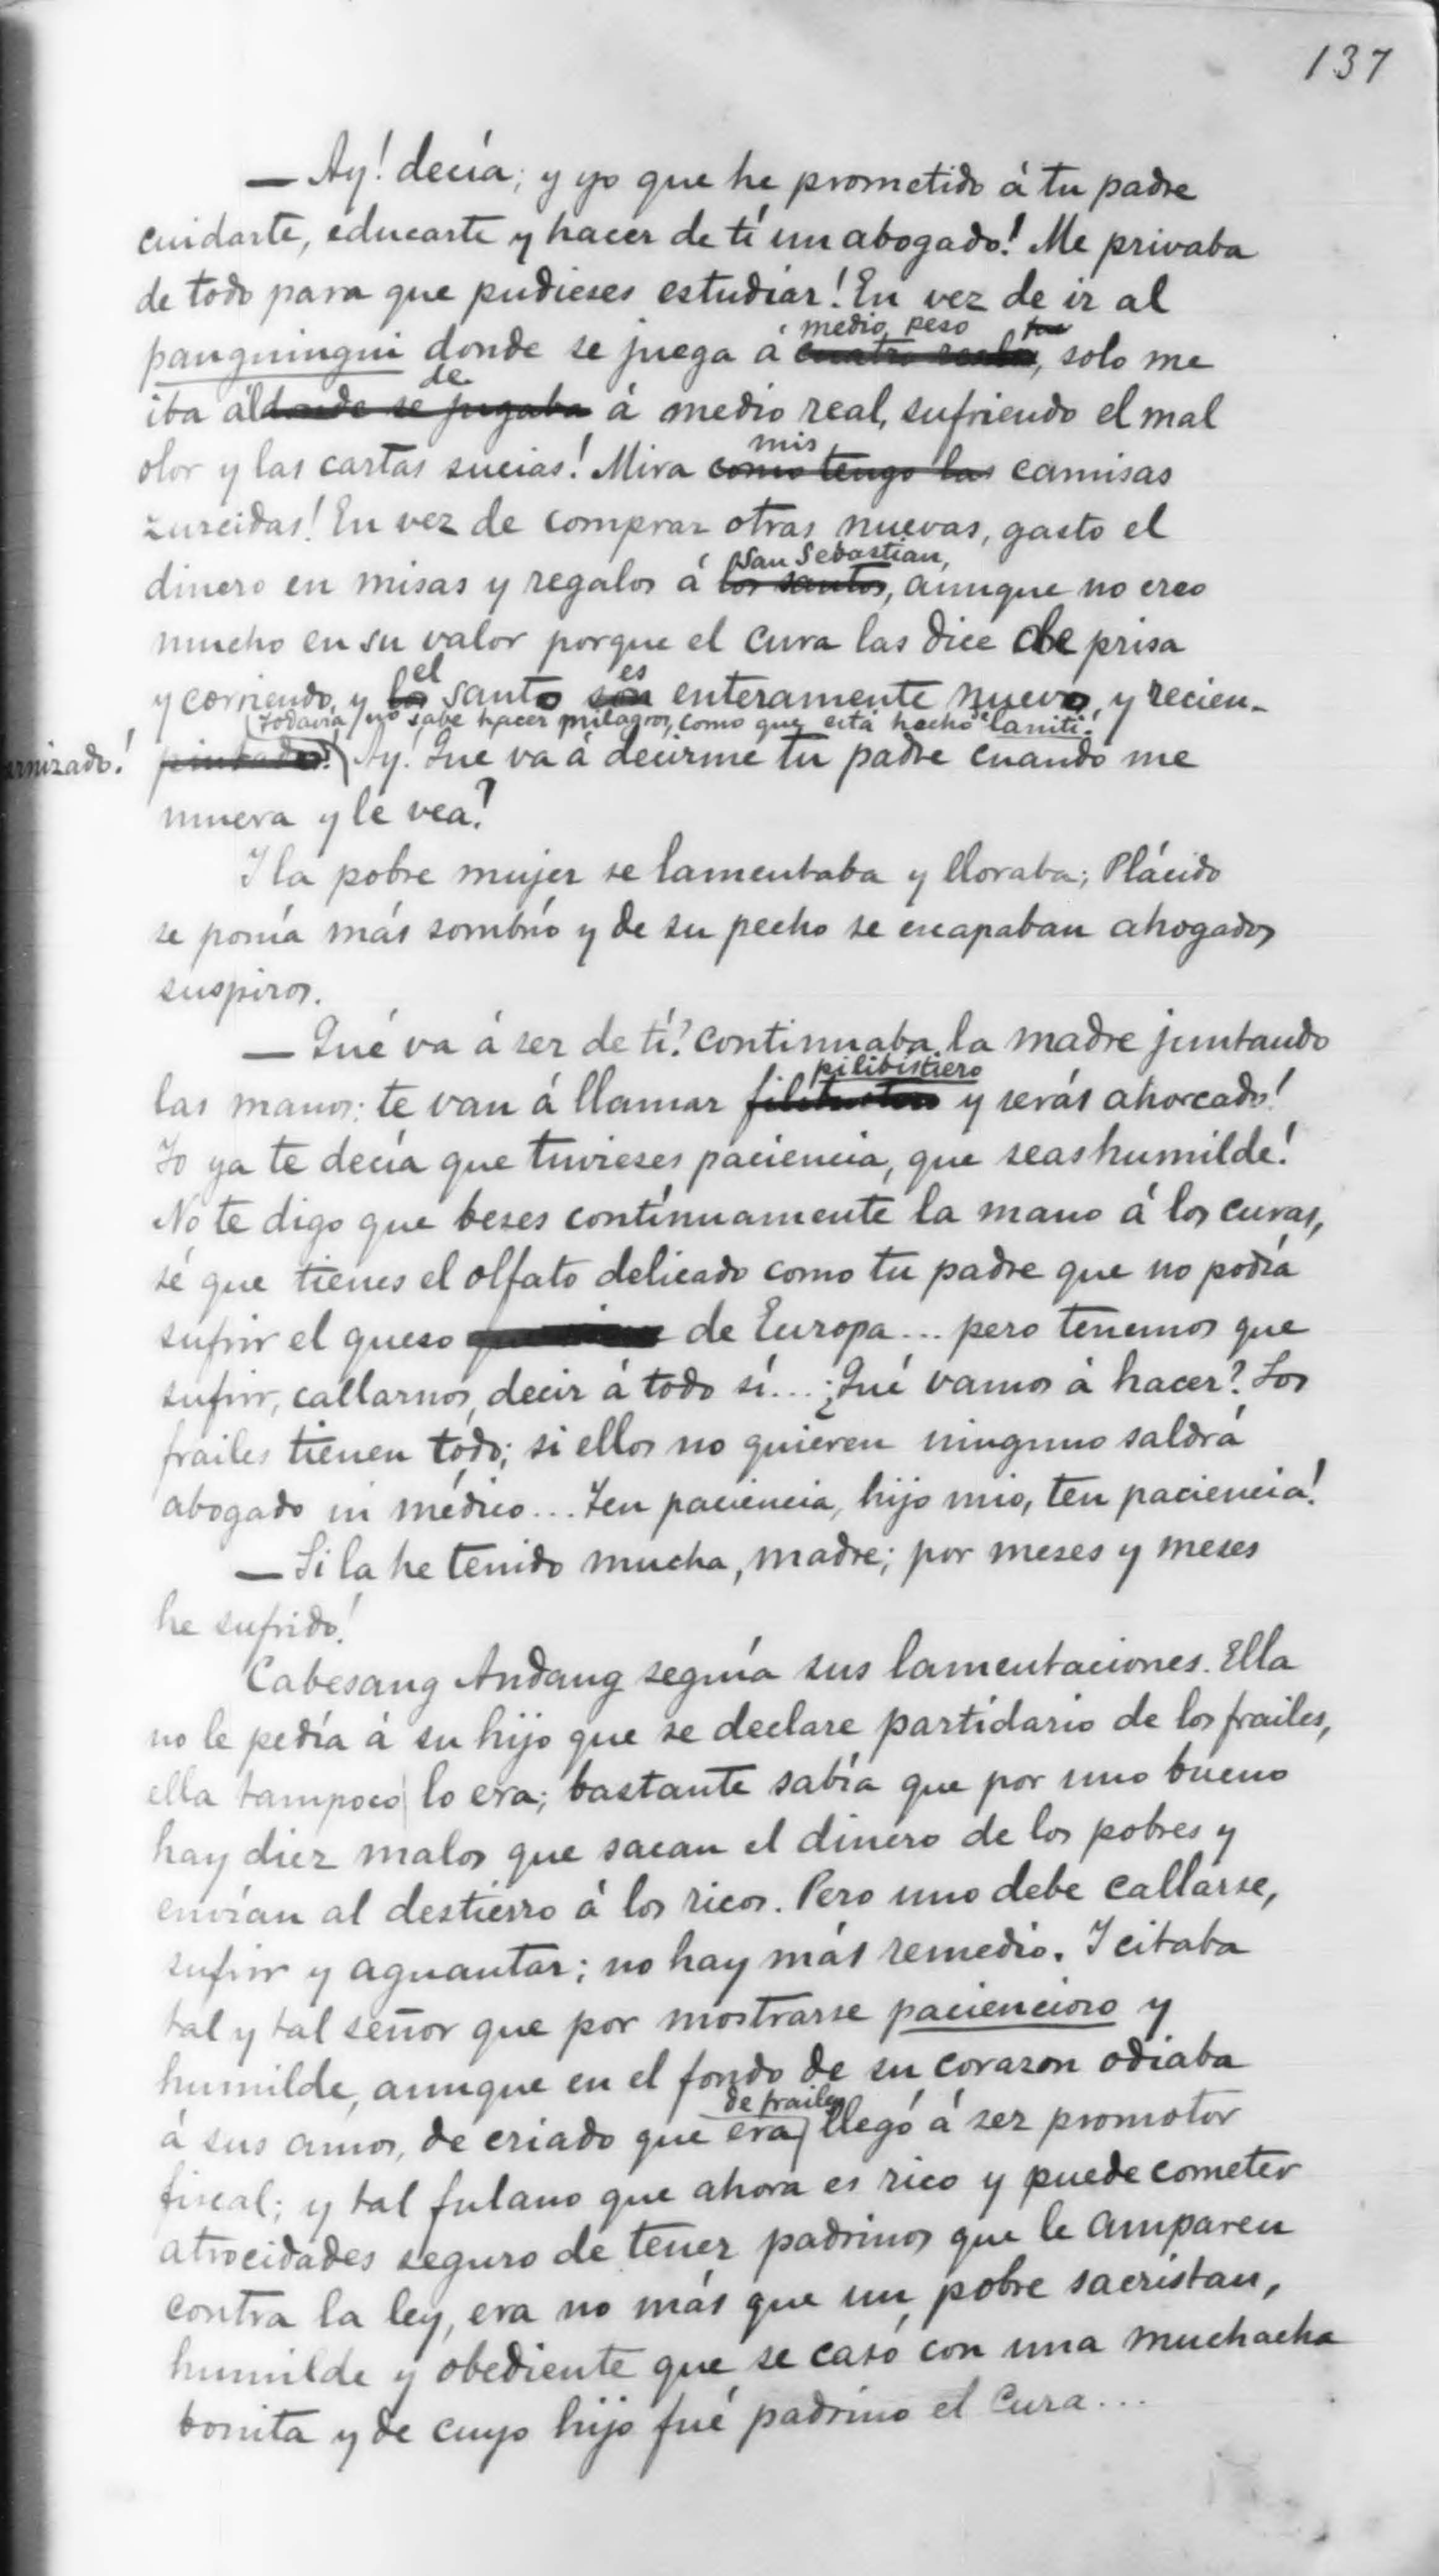 137
— Ay! decía; y yo que he prometido á tu padre
cuidarte, educarte y hacer de tí un abogado! Me privaba
de todo para que pudieses estudiar! En vez de ir al
medio peso
panguingui donde se juega á cuatro reales, solo me
de
iba al donde se jugaba á medio real, sufriendo el mal
mis
olor y las cartas sucias! Mira como tengo las camisas
zurcidas! En vez de comprar otras nuevas, gasto el
San Sebastian,
dinero en misas y regalos á los santos, aunque no creo
mucho en su valor porque el cura las dice de prisa
el es
y corriendo, y los santo son enteramente nuevo, y recien-
todavía no sabe hacer milagros, como que está hecho de laniti!
arnizado! pintado! Ay! Que va á decirme tu padre cuando me
muera y le vea!
Y la pobre mujer se lamentaba y lloraba; Plácido
se ponía más sombrío y de su pecho se escapaban ahogados
suspiros.
— Qué va á ser de tí? continuaba la madre juntando
pilibistiero
las manos; te van á llamar filibustero y serás ahorcado!
Yo ya te decía que tuvieses paciencia, que seas humilde!
No te digo que beses contínuamente la mano á los curas,
sé que tienes el olfato delicado como tu padre que no podía
sufrir el queso de Europa... pero tenemos que
sufrir, callarnos, decir á todo sí... ¿Qué vamos á hacer? Los
frailes tienen todo; si ellos no quieren ninguno saldrá
abogado ni médico... Ten paciencia, hijo mio, ten paciencia!
— Si la he tenido mucha, madre; por meses y meses
he sufrido!
Cabesang Andang seguía sus lamentaciones. Ella
no le pedía á su hijo que se declare partidario de los frailes,
ella tampoco lo era; bastante sabía que por uno bueno
hay diez malos que sacan el dinero de los pobres y
envían al destierro á los ricos. Pero uno debe callarse,
sufrir y aguantar; no hay más remedio. Y citaba
tal y tal señor que por mostrarse paciencioso y
humilde, aunque en el fondo de su corazon odiaba
de frailes
á sus amos, de criado que era llegó á ser promotor
fiscal; y tal fulano que ahora es rico y puede cometer
atrocidades seguro de tener padrinos que le amparen
contra la ley, era no más que un pobre sacristan,
humilde y obediente que se casó con una muchacha
bonita y de cuyo hijo fué padrino el Cura...